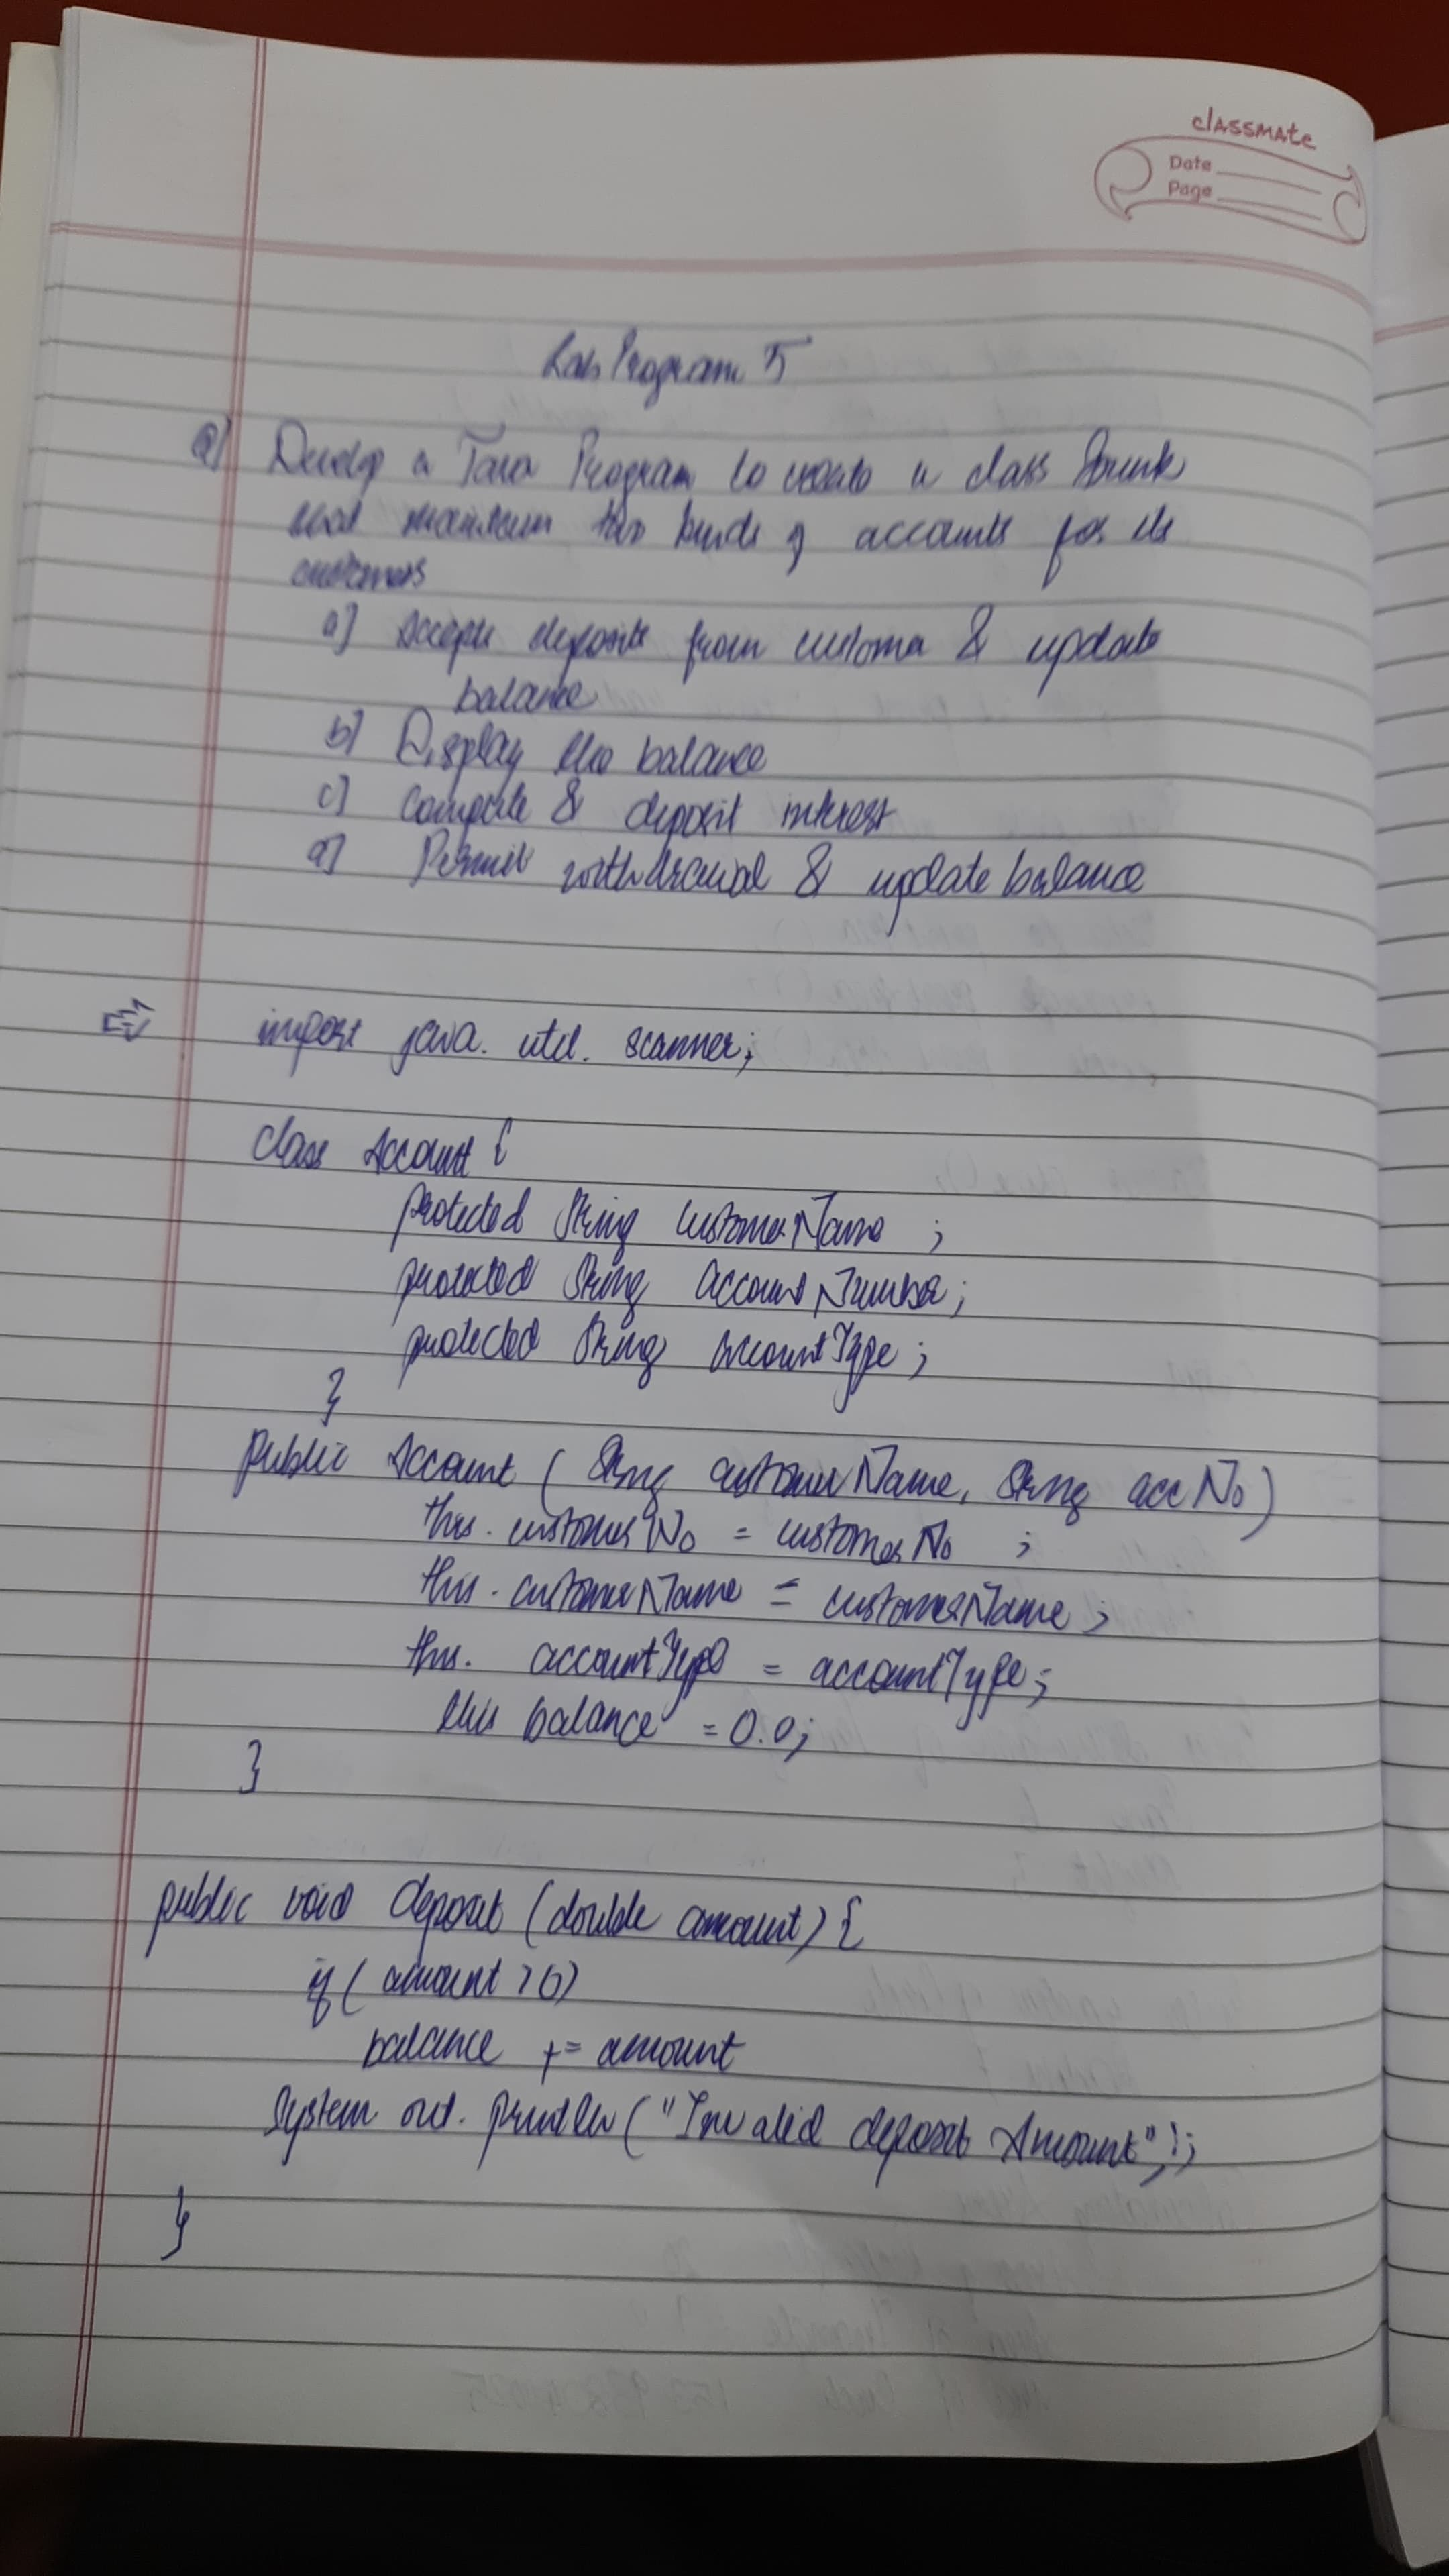 classmate
Date
Page
Lab Program 5
Q) Develop a Java Program to create a class Bank
that maintain two kinds of accounts for its
customers
a] Accept deposits from customer & update
balance
b] Display the balance
c] Compute & deposit interest
d] Permit withdrawal & update balance
=> import java. util. scanner;
class Account {
protected String customerName ;
protected String accountNumber;
protected String accountType ;
}
public Account ( String customerName, String accNo)
this. customerNo = customerNo ;
this. customerName = customerName ;
this. accountType = accountType ;
this balance = 0.0;
}
public void deposit (double amount) {
if ( amount > 0)
balance += amount
System out. println ("Invalid deposit Amount");
}